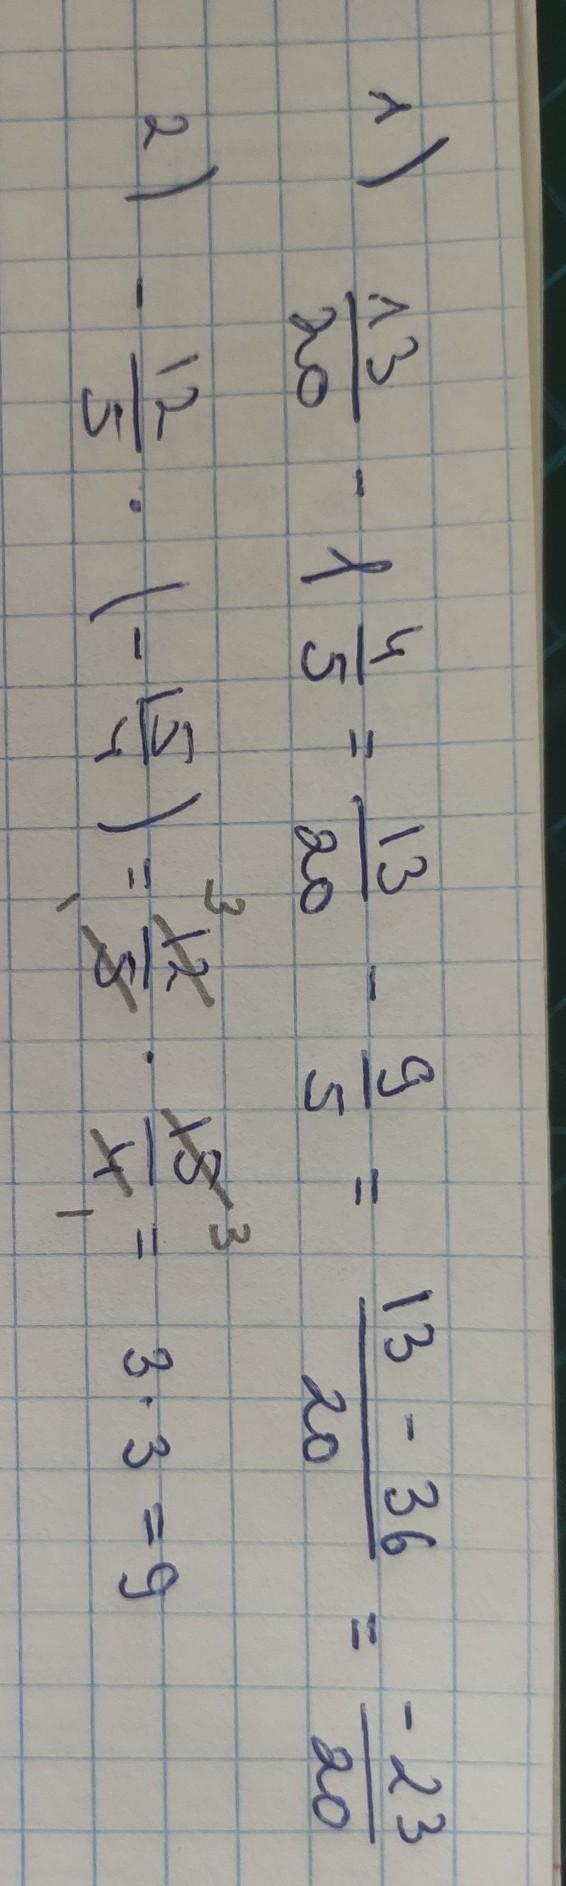 1) 13/20 - 1 4/5 = 13/20 - 9/5 = 13 - 36/20 = -23/20
2) - 12/5 · (- 15/4) = 3 12/5 1 · 15/4 3 1 = 3 · 3 = 9